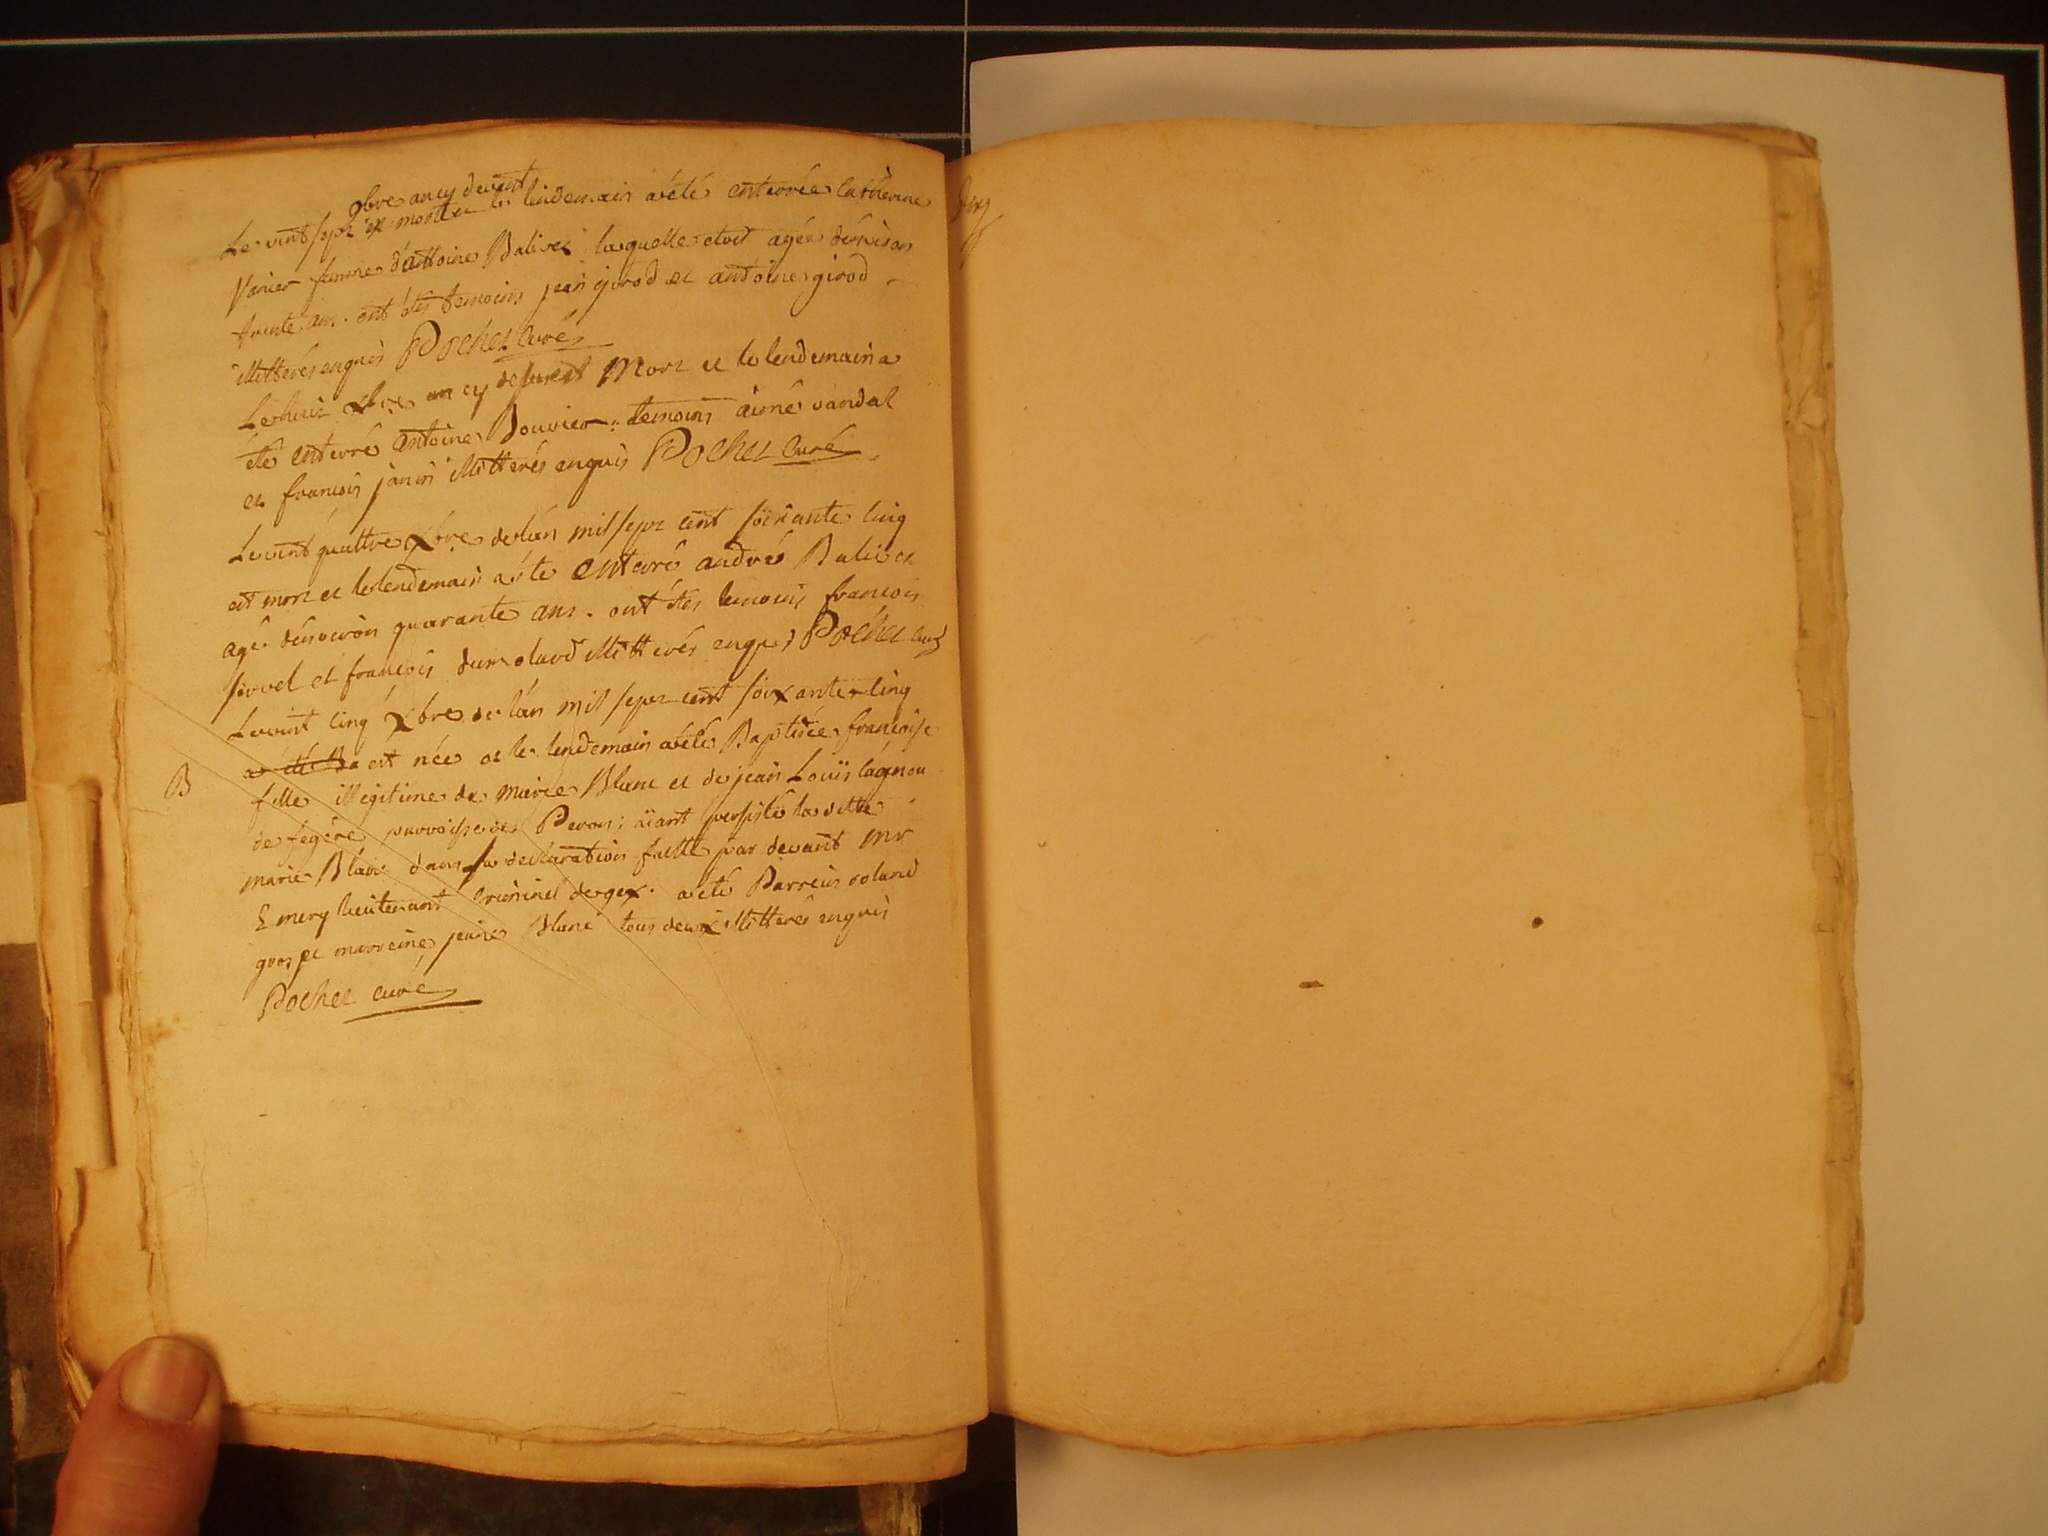 9bre an cy devant
Le vint sept est morte et le lendemain a été enterrée Catherine
Vanier femme d'antoine Balivet laquelle étoit agée d'environ
trente ans. ont étés temoins jean girod et antoine girod
illitterés enquis Pochet Curé
Le huit Xbre an cy dessus est Mort et le lendemain a
été enterré antoine Bouvier temoins aimé vandal
et françois janin illitterés enquis Pochet Curé
Le vint quattre Xbre de l'an mil sept cent soixante cinq
est mort et le lendemain a été enterré andré Balivet
agé d'environ quarante ans. ont étés temoins françois
et françois dumolard illitterés enquis Pochet curé
Le vint cinq Xbre de l'an mil sept cent soixante cinq
a été Ba est née et le lendemain a été Baptisée françoise
B
fille illegitime de marie Blanc et de jean Louïs
de parroisse de Peron; aïant persisté la ditte
marie Blanc dans sa declaration faitte par devant mr
Emery lieutenant criminel de gex. a été Parrein roland
gros et marreine jeanne Blanc tous deux illitterés enquis
Pochet curé